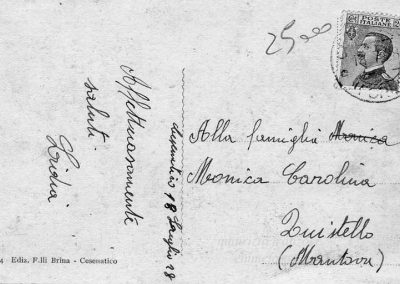 25,00
POSTE
ITALIANE
Affettuosamente
saluti
Lidia
Cesenatico 18 Luglio 28
Alla famiglia Monica
Monica Carolina
Quistello
(Mantova)
4 Ediz. F.lli Brina - Cesenatico